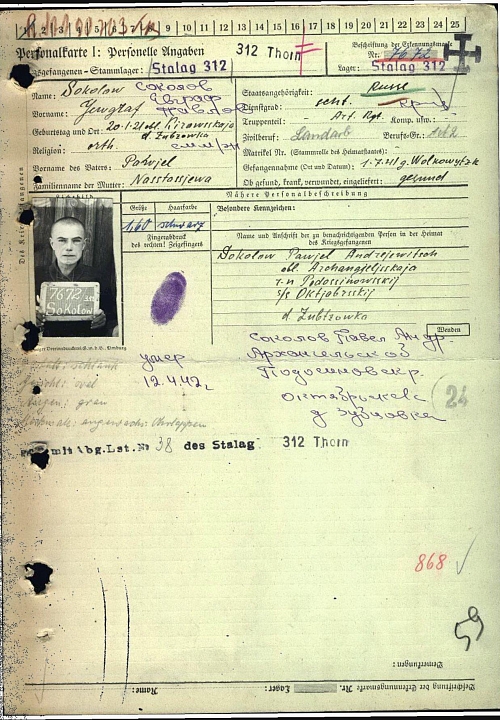 1 2 3 4 5 6 7 8 9 10 11 12 13 14 15 16 17 18 19 20 21 22 23 24 25
Personalkarte I: Personelle Angaben
312 Thorn
Beschriftung der Erkennungsmarke
Nr. 7672
Kriegsgefangenen-Stammlager: Stalag 312
Lager: Stalag 312
Name: Sokolow Соколов
Staatsangehörigkeit: Russe
Vorname: Jewgraf Евграф Павлов
Dienstgrad: Sold.
Truppenteil: Art. Rgt. Komp. usw.:
Geburtstag und Ort: 20.1.21 obl. Kirowskaja
d. Zubzowka
Zivilberuf: Landarb. Berufs-Gr.:
Religion: orth.
Matrikel Nr. (Stammrolle des Heimatstaates):
Vorname des Vaters: Pawjel
Gefangennahme (Ort und Datum): 1.7.41 g. Wolkowyzk
Familienname der Mutter: Nasstassjewa
Ob gesund, krank, verwundet, eingeliefert: gesund
Nähere Personalbeschreibung
Größe Haarfarbe
Besondere Kennzeichen:
1,60 schwarz
Fingerabdruck
des rechten! Zeigefingers
Name und Anschrift der zu benachrichtigenden Person in der Heimat
des Kriegsgefangenen
Sokolow Pawjel Andrejewitsch
obl. Archangeljsskaja
r-n Podossinowskij
s/s Oktjabrsskij
d. Zubzowka
7672
Sokolow
Wenden
Соколов Павел Андр.
Архангельской
Подосиновск р.
Октябрьск с
д Зубцовка
умер
12.4.42 г.
24
38 des Stalag 312 Thorn
868
59
Bemerkungen:
Beschriftung der Erkennungsmarke Nr. Lager: Name: